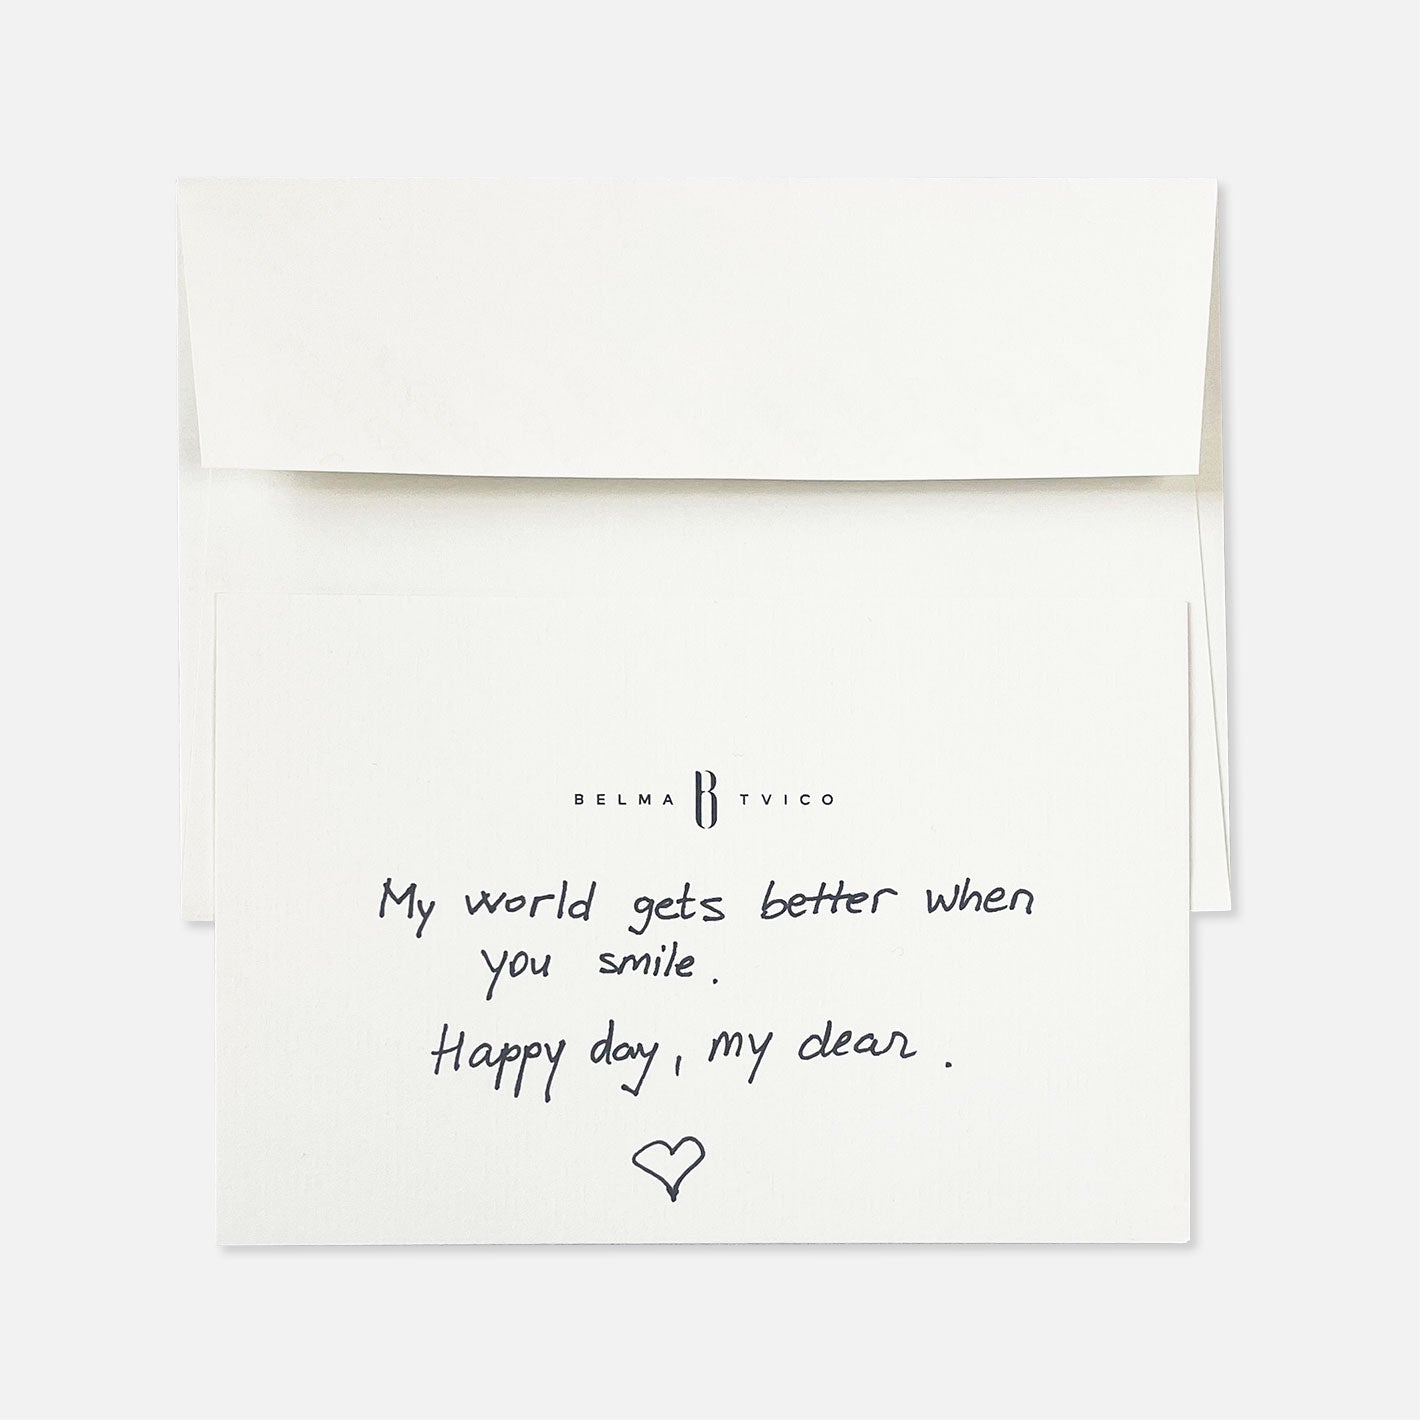 BELMA B TVICO
My world gets better when
you smile.
Happy day, my dear.